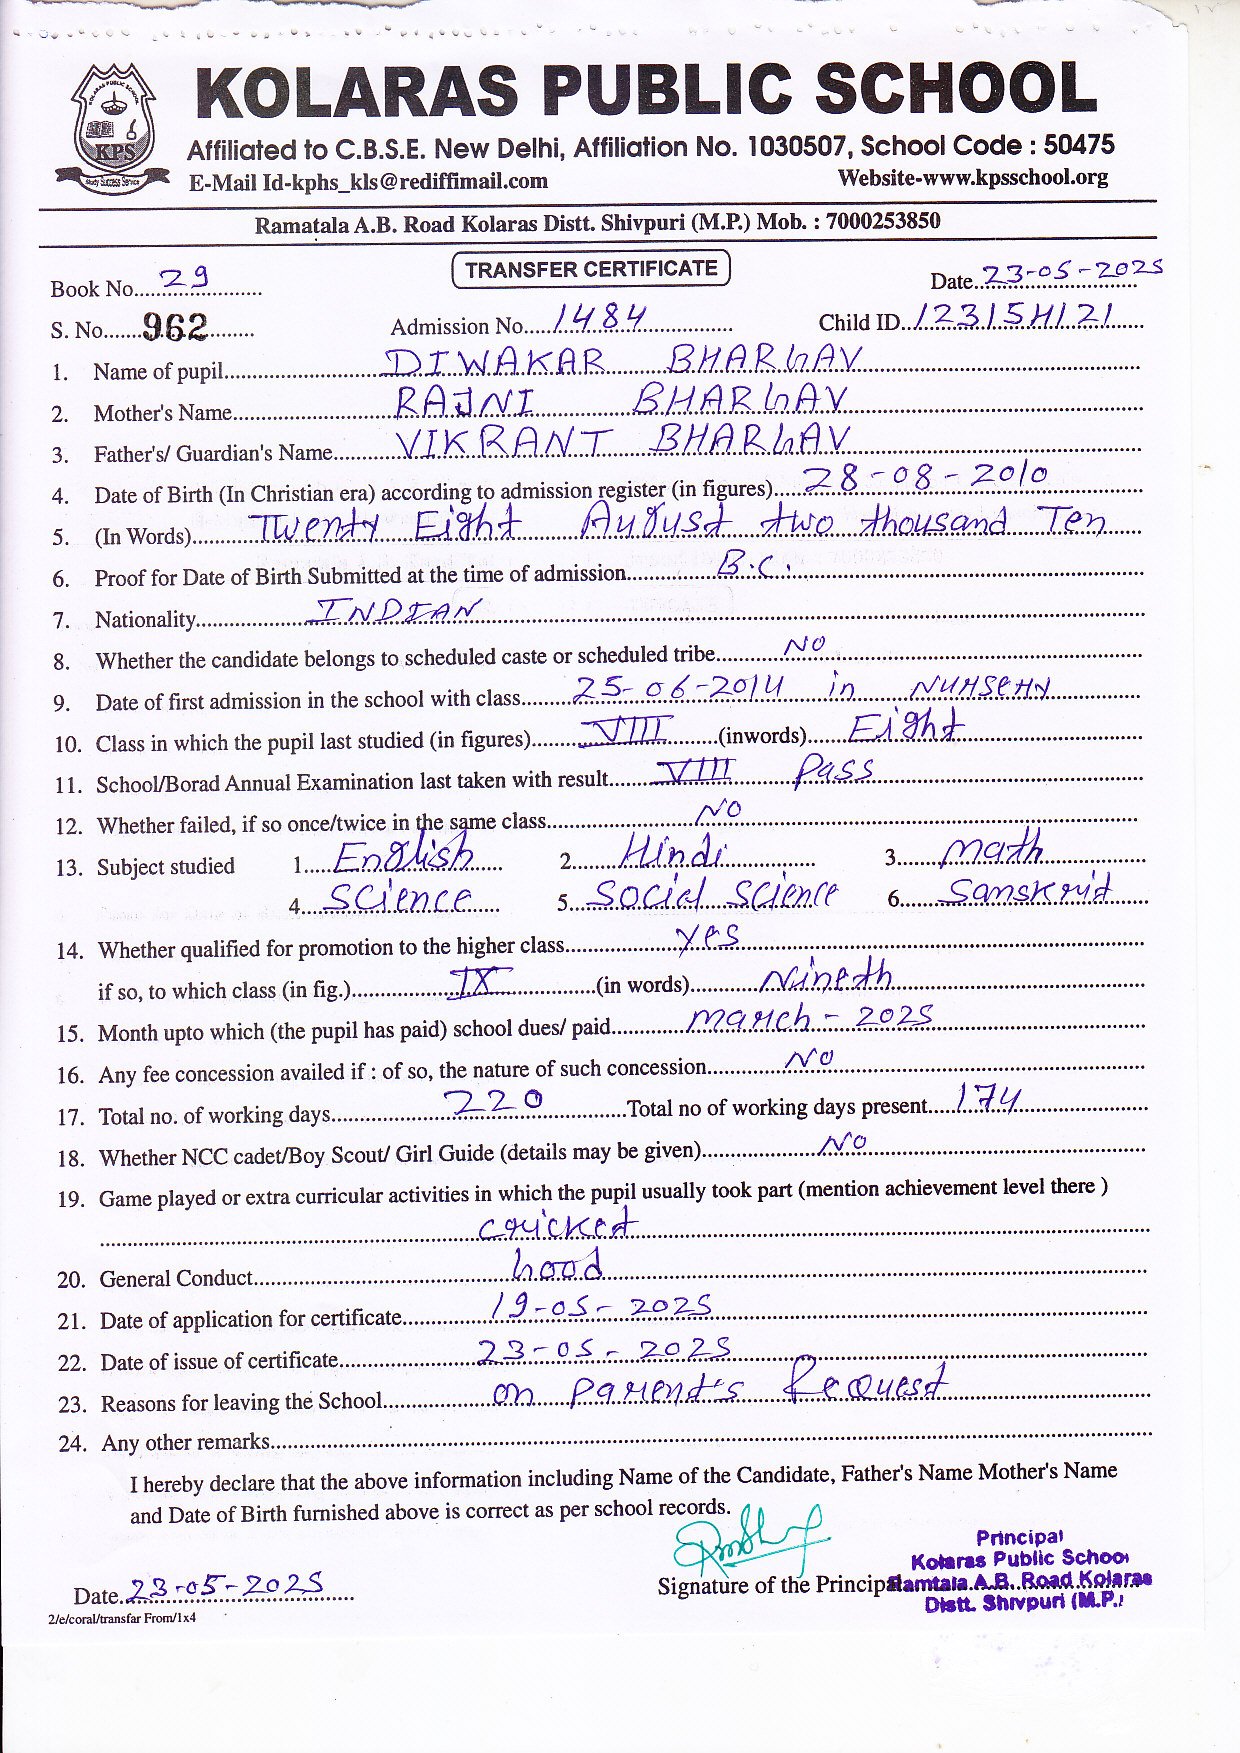 KOLARAS PUBLIC SCHOOL
KPS
Affiliated to C.B.S.E. New Delhi, Affiliation No. 1030507, School Code : 50475
E-Mail Id-kphs_kls@rediffimail.com Website-www.kpsschool.org
Ramatala A.B. Road Kolaras Distt. Shivpuri (M.P.) Mob. : 7000253850
TRANSFER CERTIFICATE
Book No. 29 Date. 23-05-2025
S. No. 962 Admission No. 1484 Child ID.
1. Name of pupil DIWAKAR BHARGAV
2. Mother's Name RAJNI BHARGAV
3. Father's/ Guardian's Name VIKRANT BHARGAV
4. Date of Birth (In Christian era) according to admission register (in figures) 28-08-2010
5. (In Words) Twenty Eight August two thousand Ten
6. Proof for Date of Birth Submitted at the time of admission B.C.
7. Nationality INDIAN
8. Whether the candidate belongs to scheduled caste or scheduled tribe NO
9. Date of first admission in the school with class 25-06-2014 in NURSERY
10. Class in which the pupil last studied (in figures) VIII (inwords) Eight
11. School/Borad Annual Examination last taken with result VIII Pass
12. Whether failed, if so once/twice in the same class NO
13. Subject studied 1. English 2. Hindi 3. Math
4. Science 5. Social Science 6. Sanskrit
14. Whether qualified for promotion to the higher class yes
if so, to which class (in fig.) IX (in words) Nineth
15. Month upto which (the pupil has paid) school dues/ paid March - 2025
16. Any fee concession availed if : of so, the nature of such concession NO
17. Total no. of working days 220 Total no of working days present 174
18. Whether NCC cadet/Boy Scout/ Girl Guide (details may be given) NO
19. Game played or extra curricular activities in which the pupil usually took part (mention achievement level there )
cricket
20. General Conduct Good
21. Date of application for certificate 19-05-2025
22. Date of issue of certificate 23-05-2025
23. Reasons for leaving the School on Parent's Request
24. Any other remarks
I hereby declare that the above information including Name of the Candidate, Father's Name Mother's Name
and Date of Birth furnished above is correct as per school records.
Principal
Kolaras Public School
Signature of the Principal Ramtala A.B. Road Kolaras
Date. 23-05-2025 Distt. Shivpuri (M.P.)
2/e/coral/transfar From/1x4